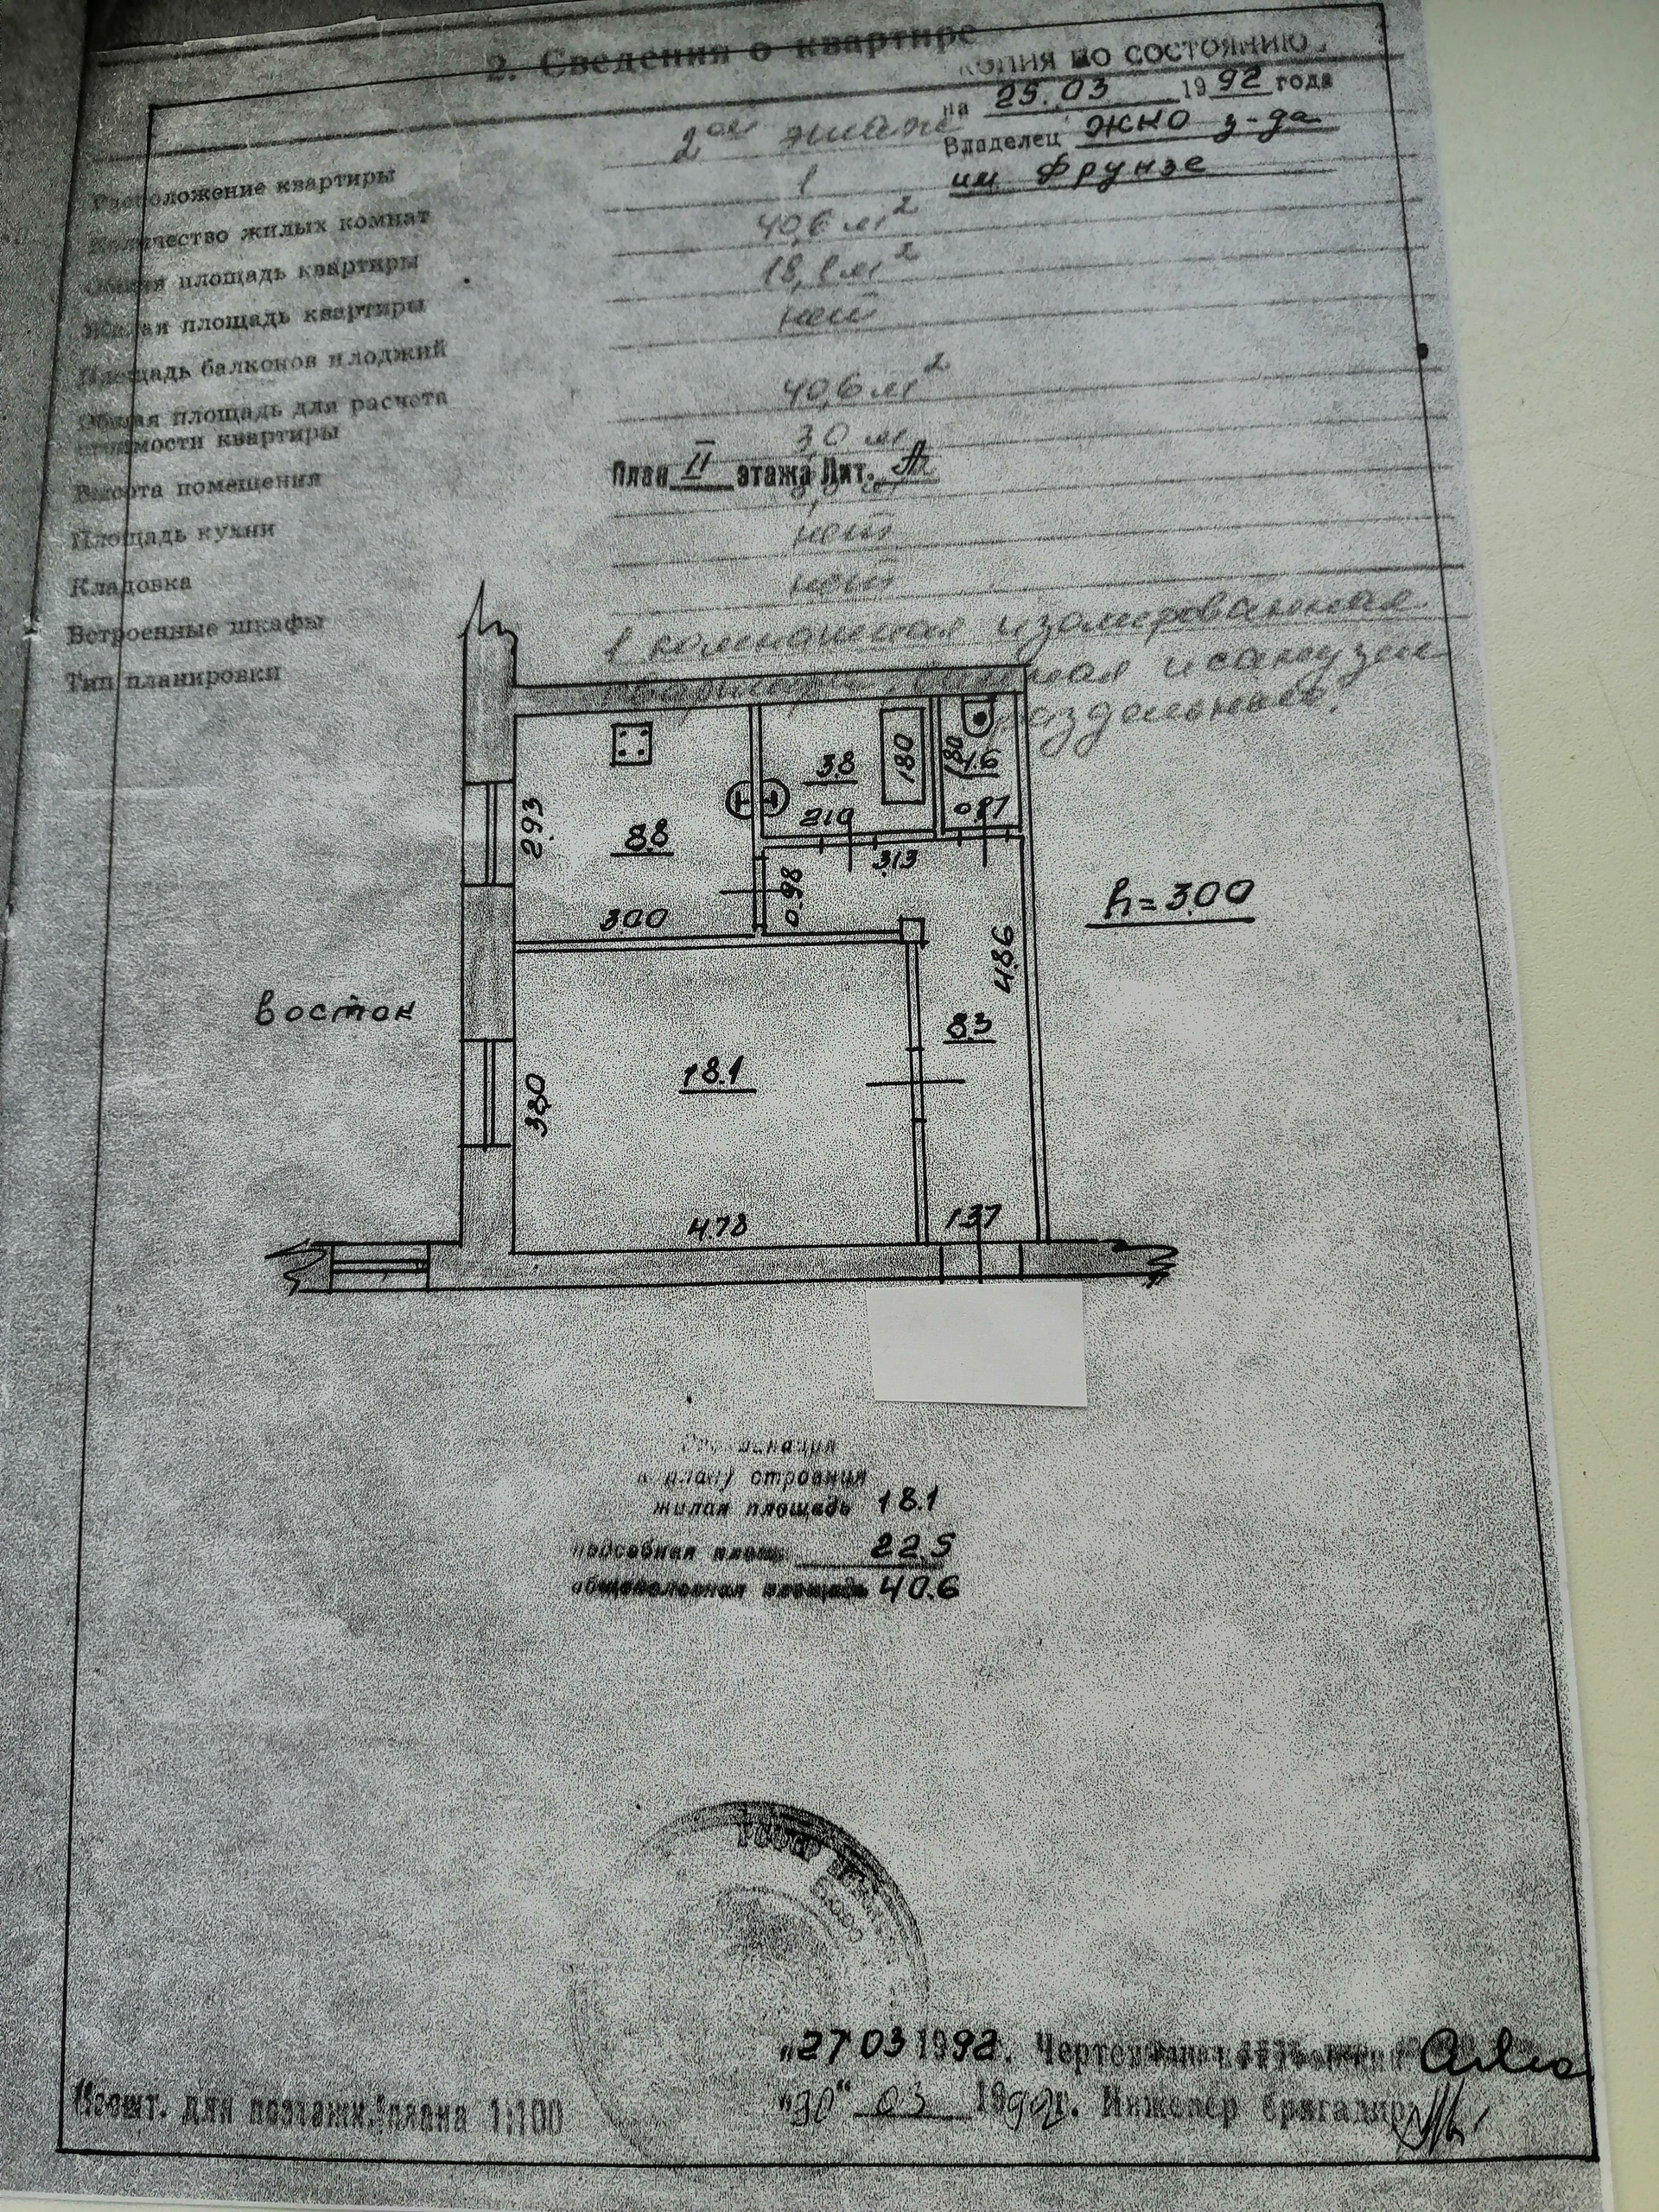 2. Сведения о квартире
КОПИЯ ПО СОСТОЯНИЮ
на 25.03 1992 года
Владелец ЖКО з-да
им Фрунзе
Расположение квартиры 2ой этаж
Количество жилых комнат 1
Общая площадь квартиры 40,6 м²
Жилая площадь квартиры 18,1 м²
Площадь балконов и лоджий нет
Общая площадь для расчета
стоимости квартиры 40,6 м²
Высота помещения 3,0 м
План II этажа Лит. А
Площадь кухни
Кладовка нет
Встроенные шкафы нет
Тип планировки 1 комнатная изолированная
и санузел
раздельные.
2.93
8.8
3.00
3.8
180
2.10
1.80
1.6
0.87
3.13
0.98
4.86
h=3.00
восток
8.3
18.1
3.80
4.78
1.37
к плану строения
жилая площадь 18.1
подсобная площ. 22.5
площадь 40.6
"27 03 1992.
"30" 03 1992г. Инженер бригадир
Масшт. для поэтажн. плана 1:100